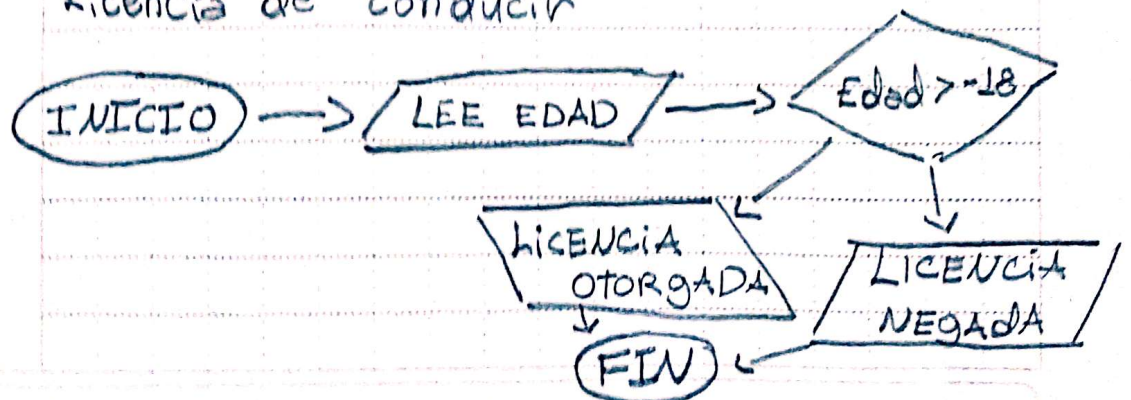 Licencia de conducir
INICIO
LEE EDAD
Edad >-18
LICENCIA
OTORGADA
LICENCIA
NEGADA
FIN